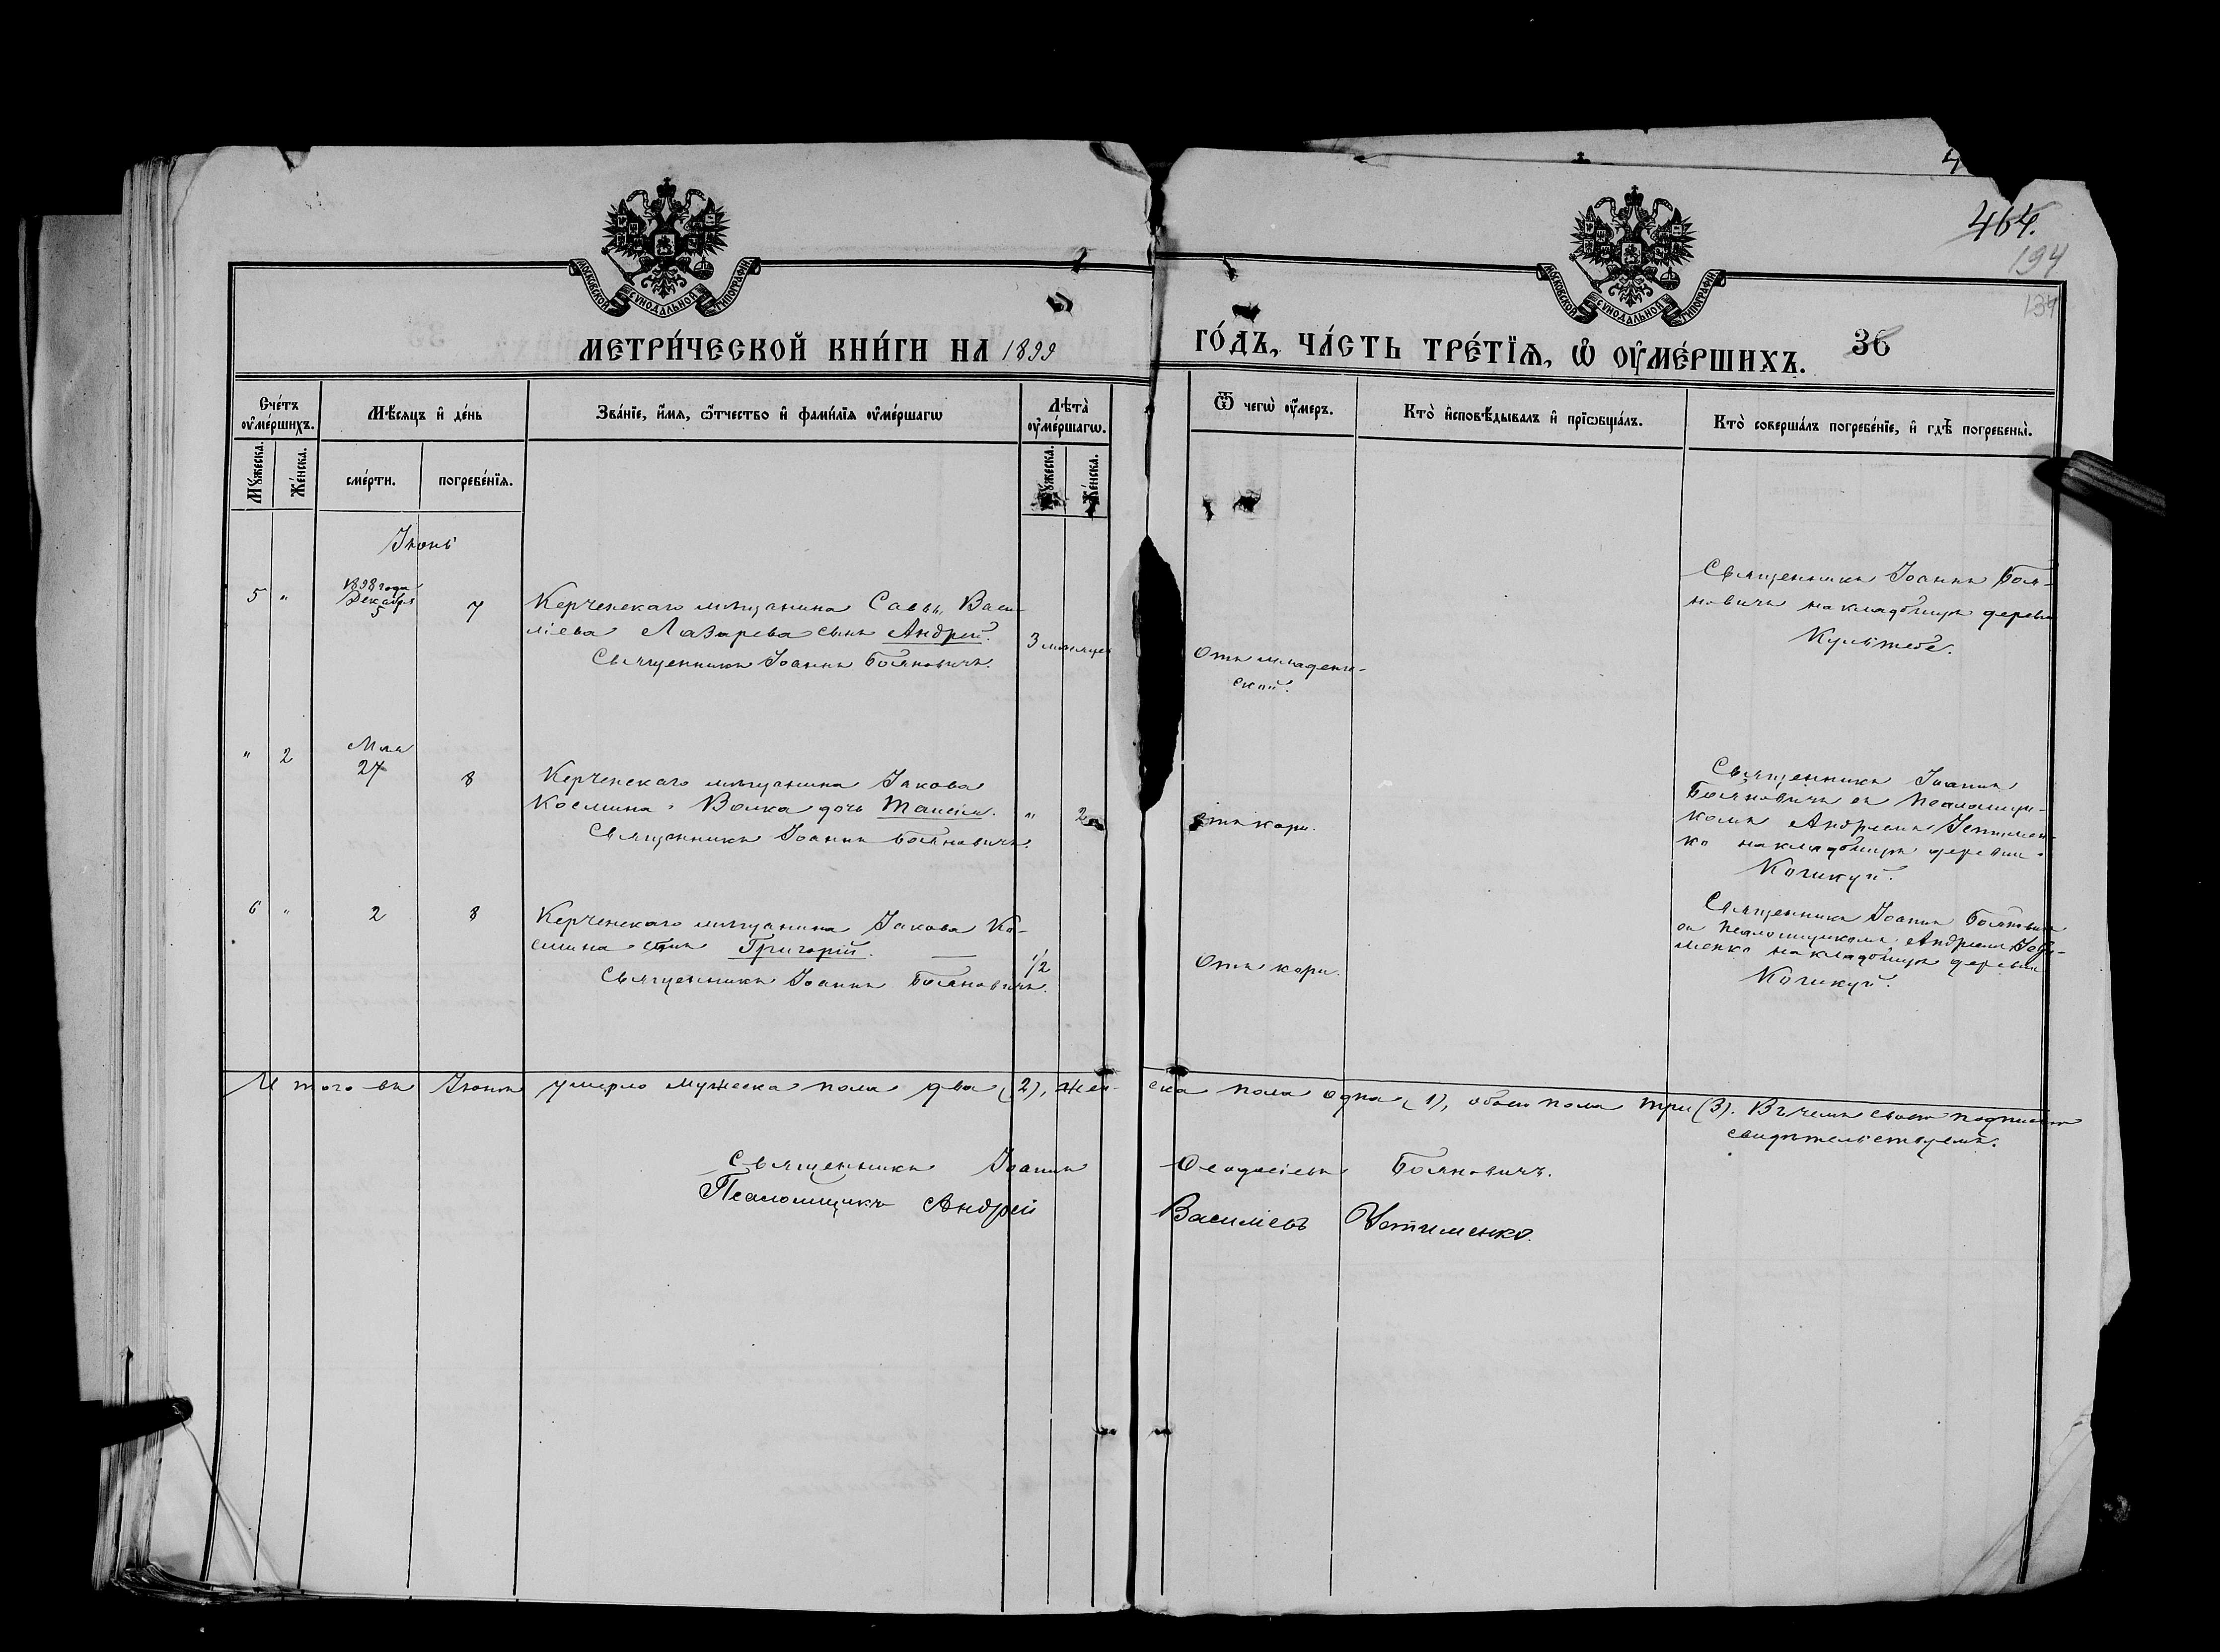 464.
194
134
МОСКОВСКОЙ СѴНОДАЛЬНОЙ ТИПОГРАФІИ
МОСКОВСКОЙ СѴНОДАЛЬНОЙ ТИПОГРАФІИ
МЕТРИ́ЧЕСКОЙ КНИ́ГИ НА 1899 ГО́ДЪ, ЧА́СТЬ ТРЕ́ТЇѦ, Ѡ҆ ОУ҆МЕ́РШИХЪ.
36
Сче́тъ оу҆ме́ршихъ.
Мꙋ́жеска.
Же́нска.
Мѣ́сѧцъ и҆ де́нь
сме́рти.
погребе́нїѧ.
Зва́нїе, и҆́мѧ, ѻ҆́тчество и҆ фами́лїѧ оу҆ме́ршагѡ
Лѣ́та̀ оу҆ме́ршагѡ.
Мꙋ́жеска.
Же́нска.
Ѿ чегѡ̀ оу҆́меръ.
Кто̀ и҆сповѣ́дывалъ и҆ прїѡбща́лъ.
Кто̀ соверша́лъ погребе́нїе, и҆ гдѣ̀ погребены̀.
Іюнь
5 " 1898 года Декабря 5 7
Керченскаго мѣщанина Саввы Васи-
ліева Лазарева сынъ Андрей.
Священникъ Іоаннъ Бояновичъ.
3 мѣсяцев
Отъ младенче-
ской.
Священникъ Іоаннъ Боя-
новичъ на кладбищѣ деревни
Культебе.
" 2 Мая 27 8
Керченскаго мѣщанина Іакова
Космина Волка дочь Таисія.
Священникъ Іоаннъ Бояновичъ.
" 2
Отъ кори.
Священникъ Іоаннъ
Бояновичъ съ псаломщи-
комъ Андреемъ Устимен-
ко на кладбищѣ деревни
Когикуй.
6 " 2 8
Керченскаго мѣщанина Іакова Ко-
смина сынъ Григорій.
Священникъ Іоаннъ Бояновичъ.
1/2
Отъ кори.
Священникъ Іоаннъ Бояновичъ
съ псаломщикомъ Андреемъ Усти-
менко на кладбищѣ деревни
Когикуй.
Итого въ Іюнѣ умерло мужеска пола два (2), жен-
ска пола одна (1), обоего пола три (3). Въ чемъ своею подписью
свидѣтельствуемъ.
Священникъ Іоаннъ Ѳеодосіевъ Бояновичъ.
Псаломщикъ Андрей Василіевъ Устименко.